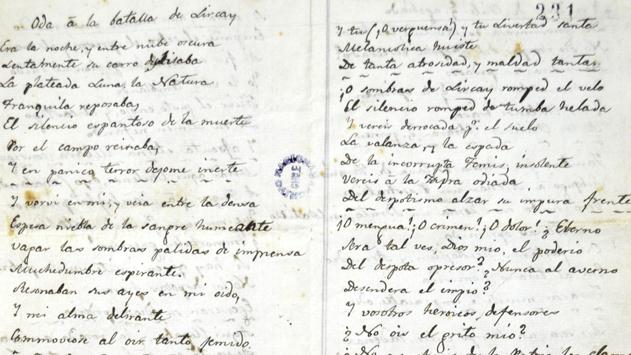 Oda à la batalla de Lircay
Era la noche, y entre nube oscura
Lentamente su carro
La plateada Luna, la Natura
Tranquila reposaba,
El silencio espantoso de la muerte
Por el campo reinaba,
Y en panico terror dejome inerte
Y volví en mi, y veia entre la densa
Espesa niebla de la sangre humeante
Vagar las sombras palidas de imprensa
Muchedumbre espirante.
Resonaban sus ayes en mi oido,
Y mi alma delirante
Commoviose al oir tanto jemido.
231
Y tu (¡O verguensa!) y tu Livertad santa
huiste
De tanta atrosidad, y maldad tanta.
¡O sombras de Lircay romped el velo
El silencio romped de tumba helada
Y vereis derrocada pr. el suelo
La valanza, y la espada
De la incorrupta Temis, insolente
Vereis à la Hydra odiada
Del despotismo alzar su impura frente
¡O mengua! ¡O crimen! ¡O dolor! ¿Eterno
Sera tal ves, Dios mio, el poderio
Del despota opresor? ¿Nunca al averno
Descendera el impio?
Y vosotros heroicos defensores
¿No ois el grito mio?